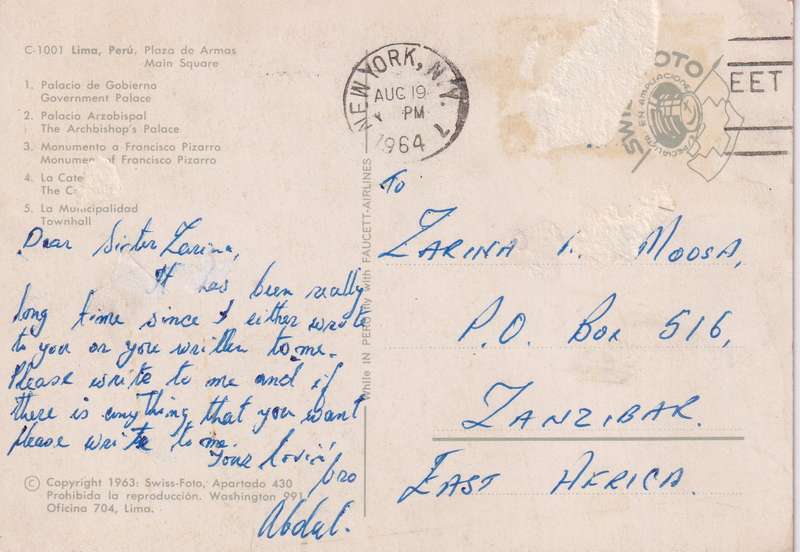 C-1001 Lima, Perú, Plaza de Armas
Main Square
1. Palacio de Gobierno
Government Palace
2. Palacio Arzobispal
The Archbishop's Palace
3. Monumento a Francisco Pizarro
Monument of Francisco Pizarro
4. La
The
5. La Municipalidad
Townhall
Dear Sister Zarina,
It has been really
long time since I either wrote
to you or you written to me.
Please write to me and if
there is anything that you want
please write to me.
Your lovin'
bro
Abdul.
© Copyright 1963: Swiss-Foto, Apartado 430
Prohibida la reproducción. Washington 991
Oficina 704, Lima.
While IN PERU fly with FAUCETT-AIRLINES
NEW YORK, N.Y.
AUG 19
PM
1964
EET
To
ZARINA MOOSA,
P.O. Box 516,
ZANZIBAR.
EAST AFRICA.